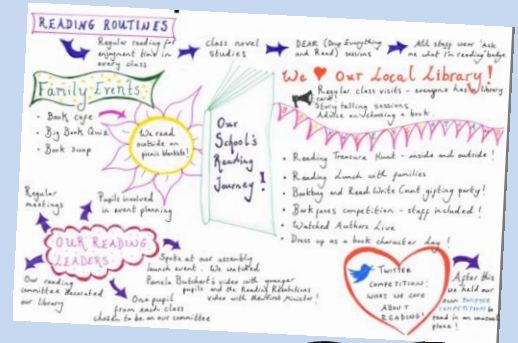 READING ROUTINES
Regular reading for
enjoyment time in
every class
class novel
studies
DEAR (Drop Everything
and Read) sessions
All staff wear 'ask
me what I'm reading' badge
Family Events
• Book cafe
• Big Book Quiz
• Book swap
We read
outside on
picnic blankets!
Our
School's
Reading
Journey!
We ♥ Our Local Library!
Regular class visits - everyone has a library
card!
Story telling sessions
Advice on choosing a book.
• Reading Treasure Hunt - inside and outside!
• Reading Lunch with families
• Bookbug and Read Write Count gifting party!
• Book faces competition - staff included!
• Watched Authors Live
• Dress up as a book character day!
Regular
meetings
Pupils involved
in event planning
OUR READING
LEADERS
Our reading
committee decorated
our library
One pupil
from each class
chosen to be on our committee
Spoke at our assembly
launch event. We watched
Pamela Butchart's video with younger
pupils and the Reader's Revolutions
video with the First Minister!
TWITTER
COMPETITION:
WHAT WE LOVE
ABOUT
READING!
After this
we held our
own TWITTER
COMPETITION to
read in an unusual
place!